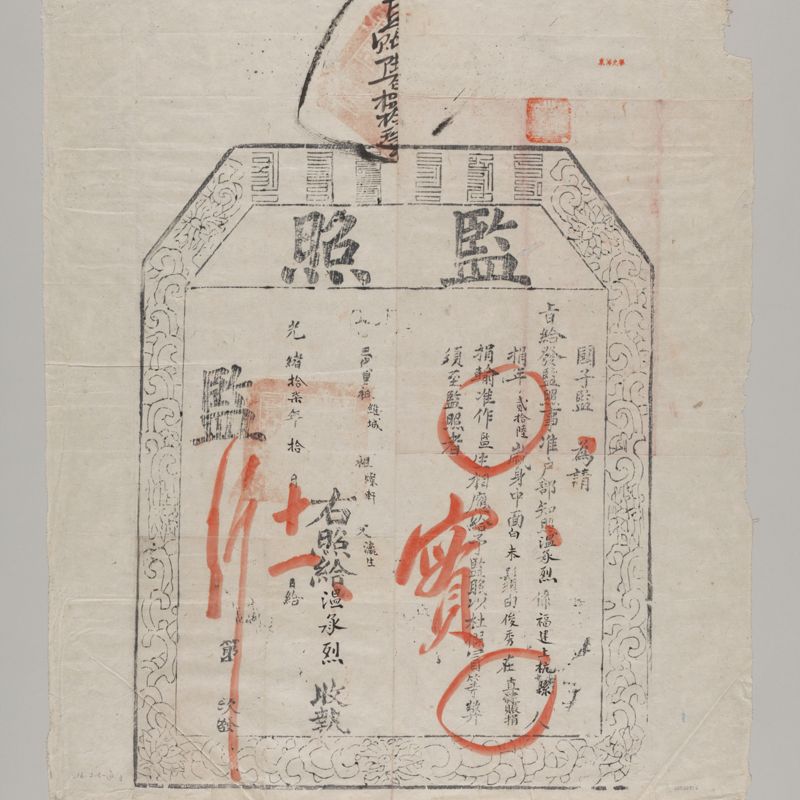 監照
國子監 為請
旨給發監照事准戶部知照溫承烈係福建上杭縣人
捐年貳拾陸歲身中面白未鬚由俊秀在直隸賑捐
捐輸准作監生相應給予監照以杜假冒等弊
須至監照者
實
曾祖維城 祖燦軒 父瀛生
右照給溫承烈收執
光緒拾柒年拾月十一日給
監
第